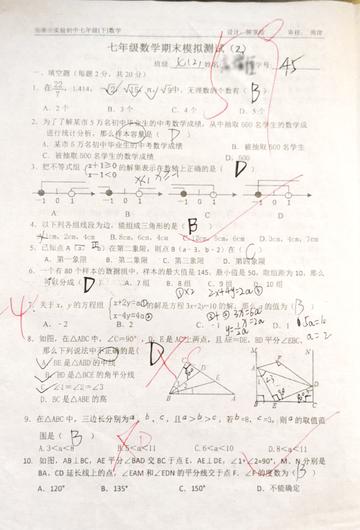 七年级数学期末模拟测试（2）
班级 七(2) 姓名 学号 45
一、填空题（每题2分，共20分）
1. 在 22/7，1.414， 中，无理数的个数有（ B ）
A. 2个 B. 3个 C. 4个 D. 5个
2. 为了了解某市5万名初中毕业生的中考数学成绩，从中抽取500名学生的数学成
绩进行统计分析，那么样本容量是（ D ）
A. 某市5万名初中毕业生的中考数学成绩 B. 被抽取500名学生
C. 被抽取500名学生的数学成绩 D. 500
3. 把不等式组 的解集表示在数轴上正确的是（ D ）
-1 0 1 -1 0 1 -1 0 1 -1 0 1
A B C D
4. 以下列各组线段为边，能组成三角形的是（ B ）
2cm，4cm B. 8cm，6cm，4cm C. 12cm，5cm，6cm D. 3cm，7cm
5. 已知点A 在第二象限，则点B（a－3，b－2）在（ C ）
A. 第一象限 B. 第二象限 C. 第三象限 D. 第四象限
6. 一个有80个样本的数据组中，样本的最大值是145，最小值是50，取组距为10，那么
可以分成（ D ） A. 7组 B. 8组 C. 9组 D. 10组
7. 关于x，y的方程组 x+2y=a① x-4y=4a② 的解是方程3x+2y=10的解，那么a的值为（ B ）
A. -2 B. 2 C. -1 D. 1
8. 如图，在△ABC中，∠C=90°，D、E是AC上两点，且AE=DE，BD平分∠EBC，
那么下列说法中不正确的是( D
A. BE是△ABD的中线
B. BD是△BCE的角平分线
C. ∠1=∠2=∠3
D. BC是△ABE的高
9. 在△ABC中，三边长分别为a、b、c，且a＞b＞c，若b=8，c=3，则a的取值范
围是（ B ）
A. 3＜a＜8 B. 5＜a＜11 C. 6＜a＜10 D. 8＜a＜11
10. 如图，AB⊥BC，AE平分∠BAD交BC于点E，AE⊥DE，∠1+∠2=90°，M、N分别是
BA、CD延长线上的点，∠EAM和∠EDN的平分线交于点F。∠F的度数为（ B ）
A. 120° B. 135° C. 150° D. 不能确定